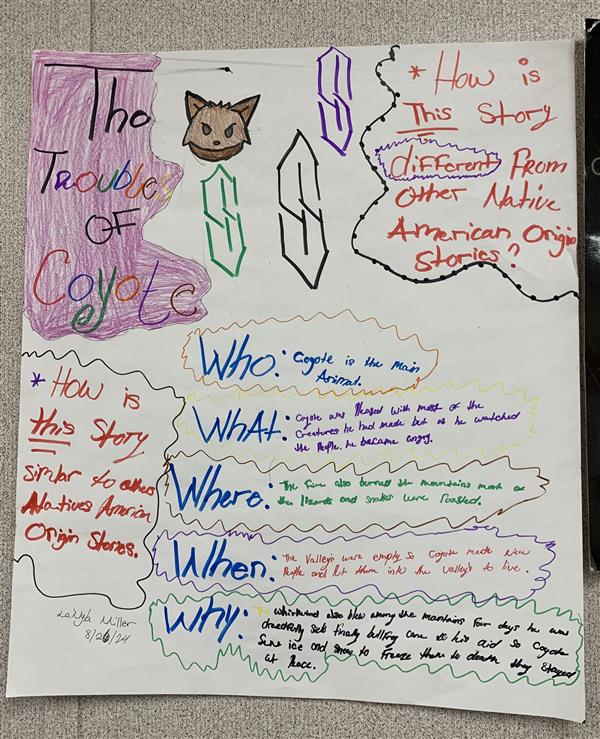 The
Trouble
OF
Coyote
* How is
This Story
different From
Other Native
American Origin
Stories?
Who: Coyote is the main
Animal.
WhAt: Coyote was Pleased with most of the
Creatures he had made but as he watched
the People, he became angry.
Where: The fire also burned the mountains most of
the lizards and snakes were roasted.
When: The Valleys were empty so Coyote made New
People and Put them into the Valleys to live.
Why: The Whirlwind also blew among the mountains For days he was
dreadfully sick finally came to his aid so Coyote
Sent ice and Snow to Freeze them to death they Stayed
at Peace.
* How is
this Story
similar to others
Natives American
Origin Stories.
Miller
8/26/24